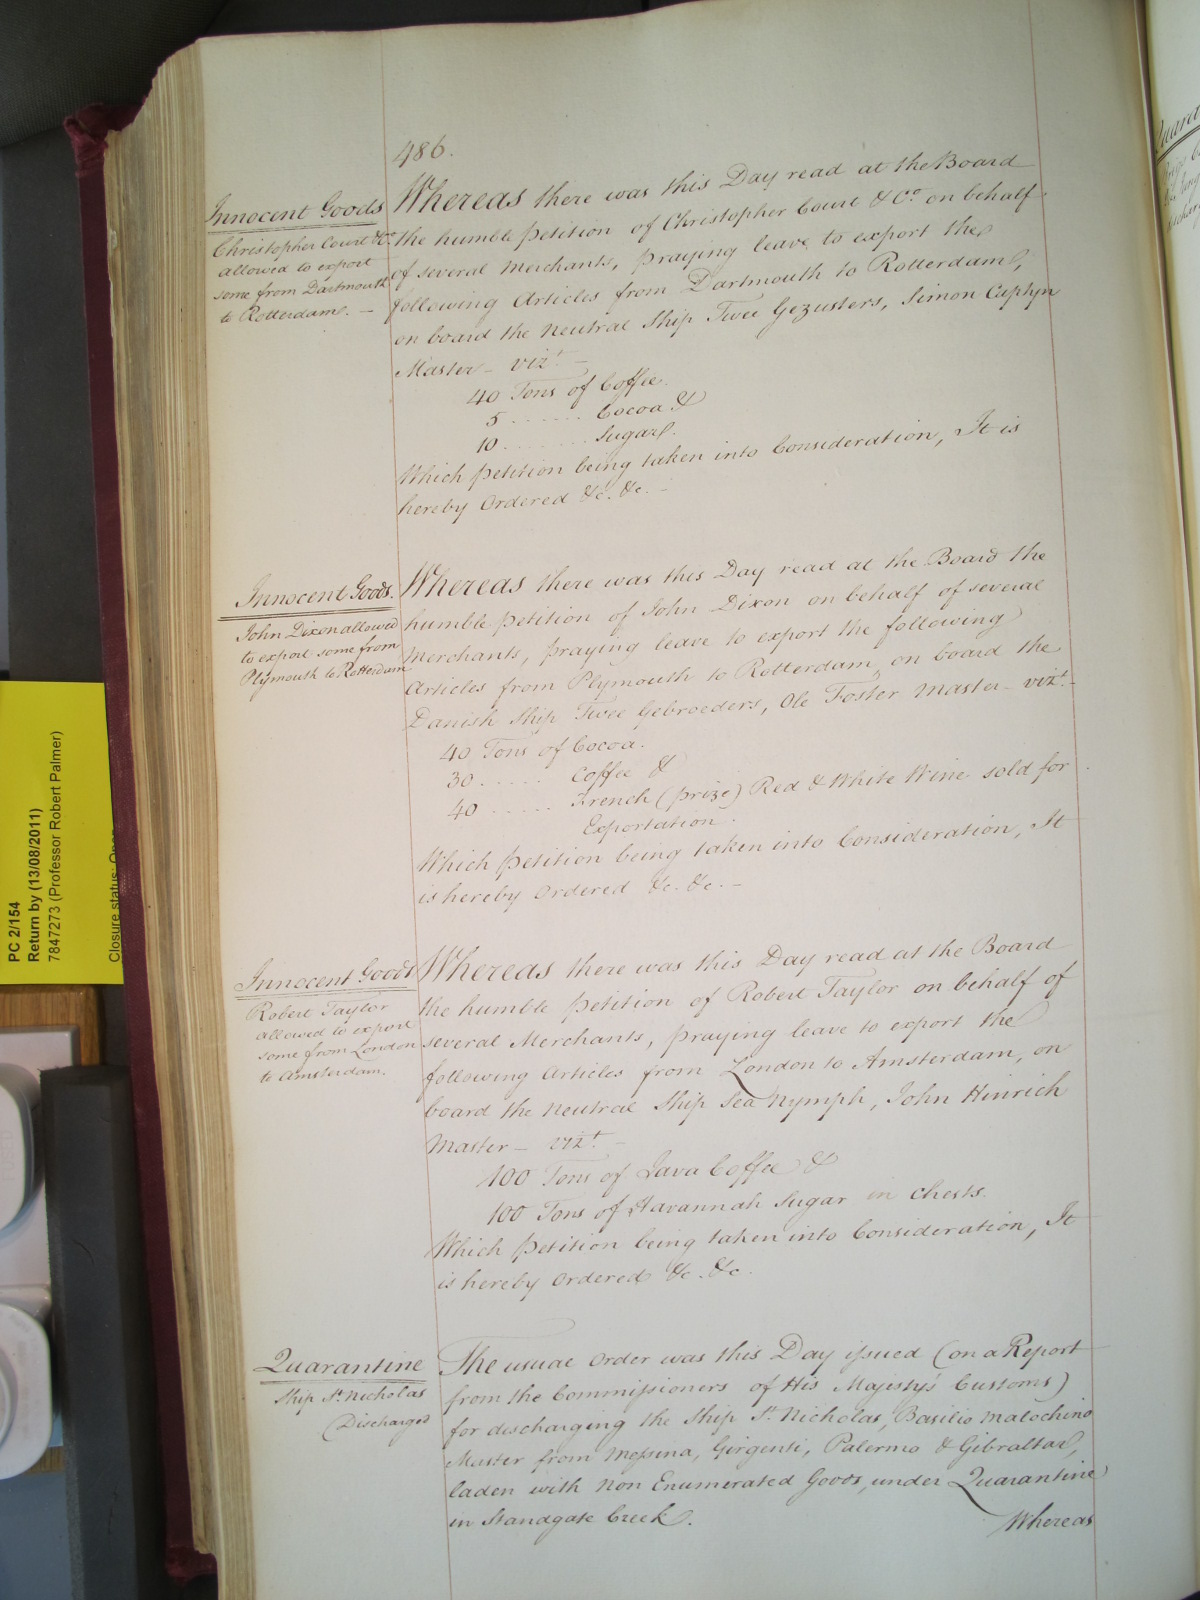 486.
Innocent Goods
Christopher Court & Co.
allowed to export
some from Dartmouth
to Rotterdam. —
Whereas there was this Day read at the Board
the humble Petition of Christopher Court & Co. on behalf
of several Merchants, praying leave to export the
following Articles from Dartmouth to Rotterdam,
on board the Neutral Ship Twee Gezusters, Simon
Master — vizt. —
40 Tons of Coffee.
5 . . . . . . Cocoa &
10 . . . . . . Sugar.
Which Petition being taken into Consideration, It is
hereby Ordered &c. &c. —
Innocent Goods.
John Dixon allowed
to export some from
Plymouth to Rotterdam
Whereas there was this Day read at the Board the
humble Petition of John Dixon on behalf of several
Merchants, praying leave to export the following
Articles from Plymouth to Rotterdam, on board the
Danish Ship Twee Gebroeders, Ole Foster Master — vizt. —
40 Tons of Cocoa.
30 . . . . . Coffee &
40 . . . . . French (prize) Red & White Wine sold for
Exportation.
Which Petition being taken into Consideration, It
is hereby Ordered &c. &c. —
Innocent Goods
Robert Taylor
allowed to export
some from London
to Amsterdam.
Whereas there was this Day read at the Board
the humble Petition of Robert Taylor on behalf of
several Merchants, praying leave to export the
following Articles from London to Amsterdam, on
board the Neutral Ship Sea Nymph, John Hinrich
Master — vizt. —
100 Tons of Java Coffee &
100 Tons of Havannah Sugar in chests.
Which Petition being taken into Consideration, It
is hereby Ordered &c. &c.
Quarantine
Ship St. Nicholas
Discharged
The usual Order was this Day issued (on a Report
from the Commissioners of His Majesty's Customs)
for discharging the Ship St. Nicholas, Basilio Malochino
Master from Messina, Girgenti, Palermo & Gibraltar,
laden with Non Enumerated Goods, under Quarantine
in Standgate Creek.
Whereas
PC 2/154
Return by (13/08/2011)
7847273 (Professor Robert Palmer)
Closure status: Open